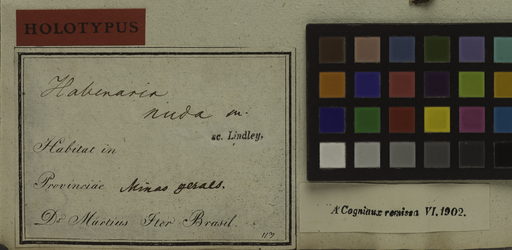 HOLOTYPUS
Habenaria
nuda m.
sc. Lindley.
Habitat in
Provinciae Minas geraes.
Dr Martius Iter Brasil.
A Cogniaux remissa VI. 1902.